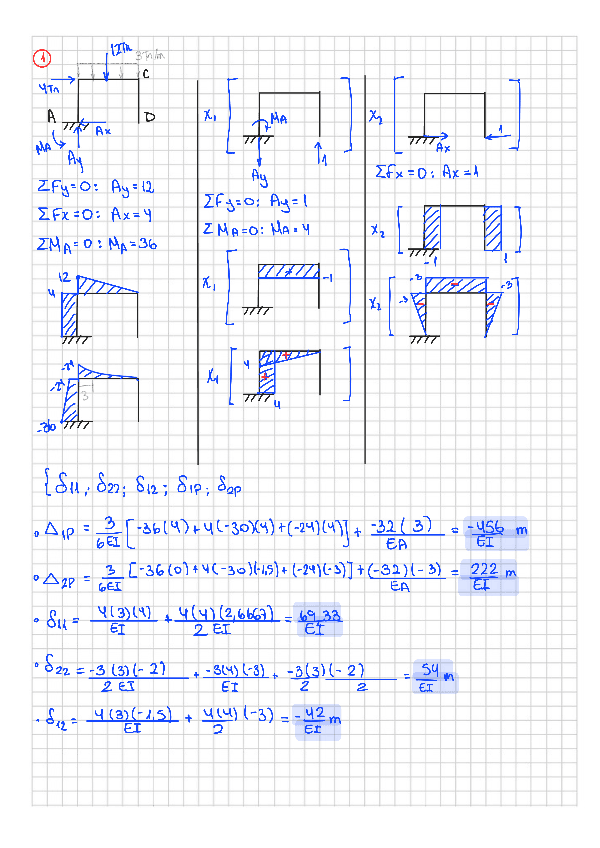 1
12Tn
3Tn/m
4Tn
C
A
D
Ax
MA
Ay
ΣFy=0: Ay=12
ΣFx=0: Ax=4
ΣMA=0: MA=36
12
4
-24
-24
3
-36
X1
MA
Ay
1
ΣFy=0: Ay=1
ΣMA=0: MA=4
X1
+
-1
X1
4
+
+
4
X2
Ax
1
ΣFx=0: Ax=1
X2
-1
1
X2
-3
-3
-
-
-
-3
{ δ11; δ22; δ12; δ1P; δ2P
• Δ1P = 3/6EI [-36(4)+4(-30)(4)+(-24)(4)] + -32(3)/EA = -456/EI m
• Δ2P = 3/6EI [-36(0)+4(-30)(-1,5)+(-24)(-3)] + (-32)(-3)/EA = 222/EI m
• δ11 = 4(3)(4)/EI + 4(4)(2,6667)/2EI = 69,33/EI
• δ22 = -3(3)(-2)/2EI + -3(4)(-3)/EI + -3(3)(-2)/2 2 = 54/EI m
• δ12 = 4(3)(-1,5)/EI + 4(4)/2 (-3) = -42/EI m